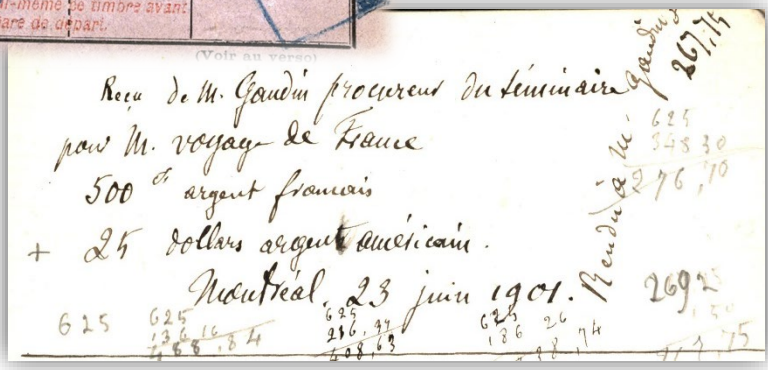 -même ce timbre avant
are de départ.
(Voir au verso)
Reçu de M. Gaudin procureur du séminaire
pour M. voyage de France
500 f argent français
+ 25 dollars argent américain.
Montréal, 23 juin 1901.
Rendu à M. Gaudin
267,75
625
348 30
276,70
269 2
625
625
136 16
488.84
625
216.37
408,63
625
186 26
38,74